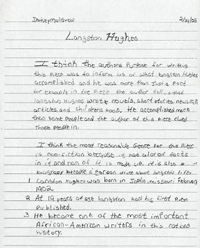 Langston Hughes
I think the authors purpose for writing
this piece was to inform us of what langston Hughes
accomplished and he was more than just a poet
langston hughes wrote novels, short stories, newslett
articles and childrens book. He accomplished more
than some people and the author of this piece
these people in.
I think the most reasonable genre for this piece
is non-fiction because it has alot of facts
in it and non of it is made up. It is also a
because a person wrote about langston life.
1 Langston Hughes was born in Joplin missouri February
1902
2 At 19 years of age langston had his first poem
published.
3 He became one of the most important
African-American writers in this nations
history.